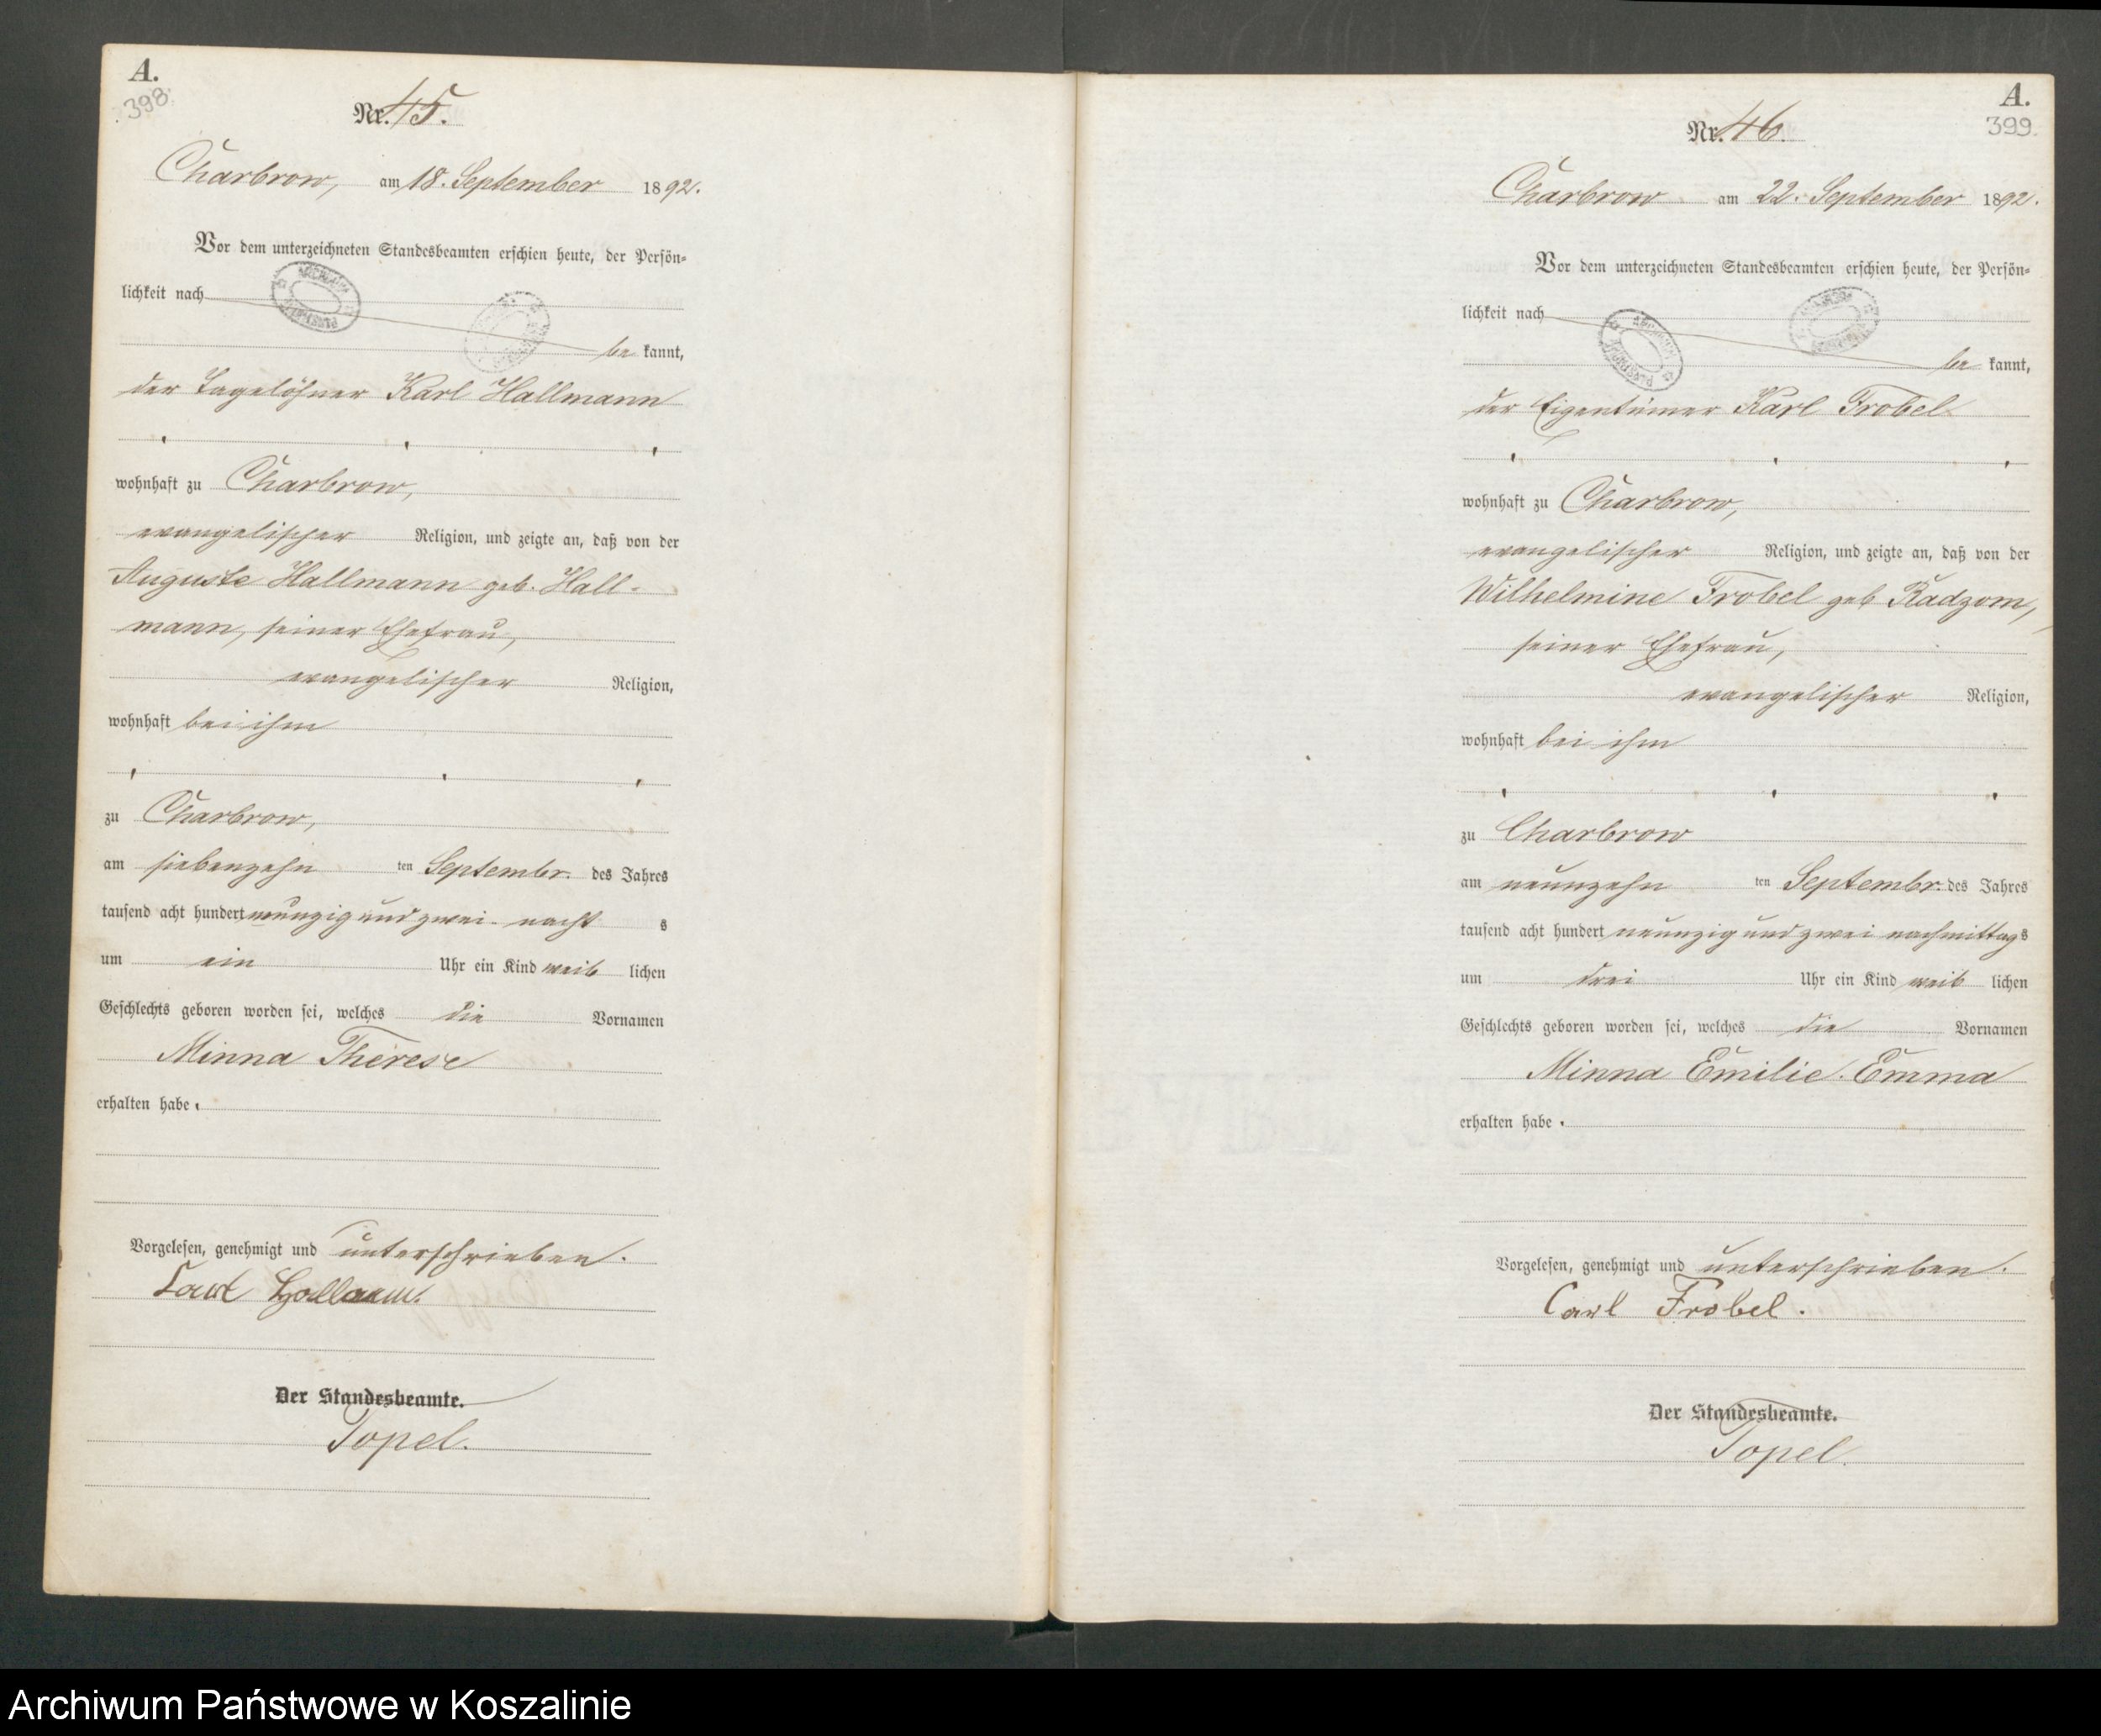 A.
398.
Nr. 45.
Charbrow, am 18. September 1892.
Vor dem unterzeichneten Standesbeamten erschien heute, der Persön=
lichkeit nach
be kannt,
der Tagelöhner Karl Hallmann
wohnhaft zu Charbrow,
evangelischer Religion, und zeigte an, daß von der
Auguste Hallmann geb. Hall-
mann, seiner Ehefrau,
evangelischer Religion,
wohnhaft bei ihm
zu Charbrow,
am siebenzehn ten Septembr. des Jahres
tausend acht hundert neunzig und zwei nacht s
um ein Uhr ein Kind weib lichen
Geschlechts geboren worden sei, welches die Vornamen
Minna Therese
erhalten habe.
Vorgelesen, genehmigt und unterschrieben.
Carl
Der Standesbeamte.
Topel.
A.
399.
Nr. 46.
Charbrow am 22. September 1892.
Vor dem unterzeichneten Standesbeamten erschien heute, der Persön=
lichkeit nach
be kannt,
der Eigentümer Karl Frobel
wohnhaft zu Charbrow,
evangelischer Religion, und zeigte an, daß von der
Wilhelmine Frobel geb Radzom,
seiner Ehefrau,
evangelischer Religion,
wohnhaft bei ihm
zu Charbrow
am neunzehn ten Septembr. des Jahres
tausend acht hundert neunzig und zwei nachmittag s
um drei Uhr ein Kind weib lichen
Geschlechts geboren worden sei, welches die Vornamen
Minna Emilie Emma
erhalten habe.
Vorgelesen, genehmigt und unterschrieben.
Carl Frobel.
Der Standesbeamte.
Topel.
Archiwum Państwowe w Koszalinie